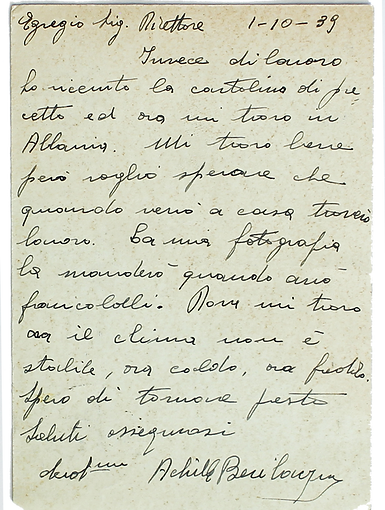 Egregio Sig. Direttore 1-10-39
Invece di lavoro
ho ricevuto la cartolina di pre
cetto ed ora mi trovo in
Albania. Mi trovo bene
però voglio sperare che
quando verrò a casa troverò
lavoro. La mia fotografia
la manderò quando avrò
francobolli. Dove mi trovo
ora il clima non è
stabile, ora caldo, ora freddo.
Spero di tornare presto
Saluti ossequiosi
Achille